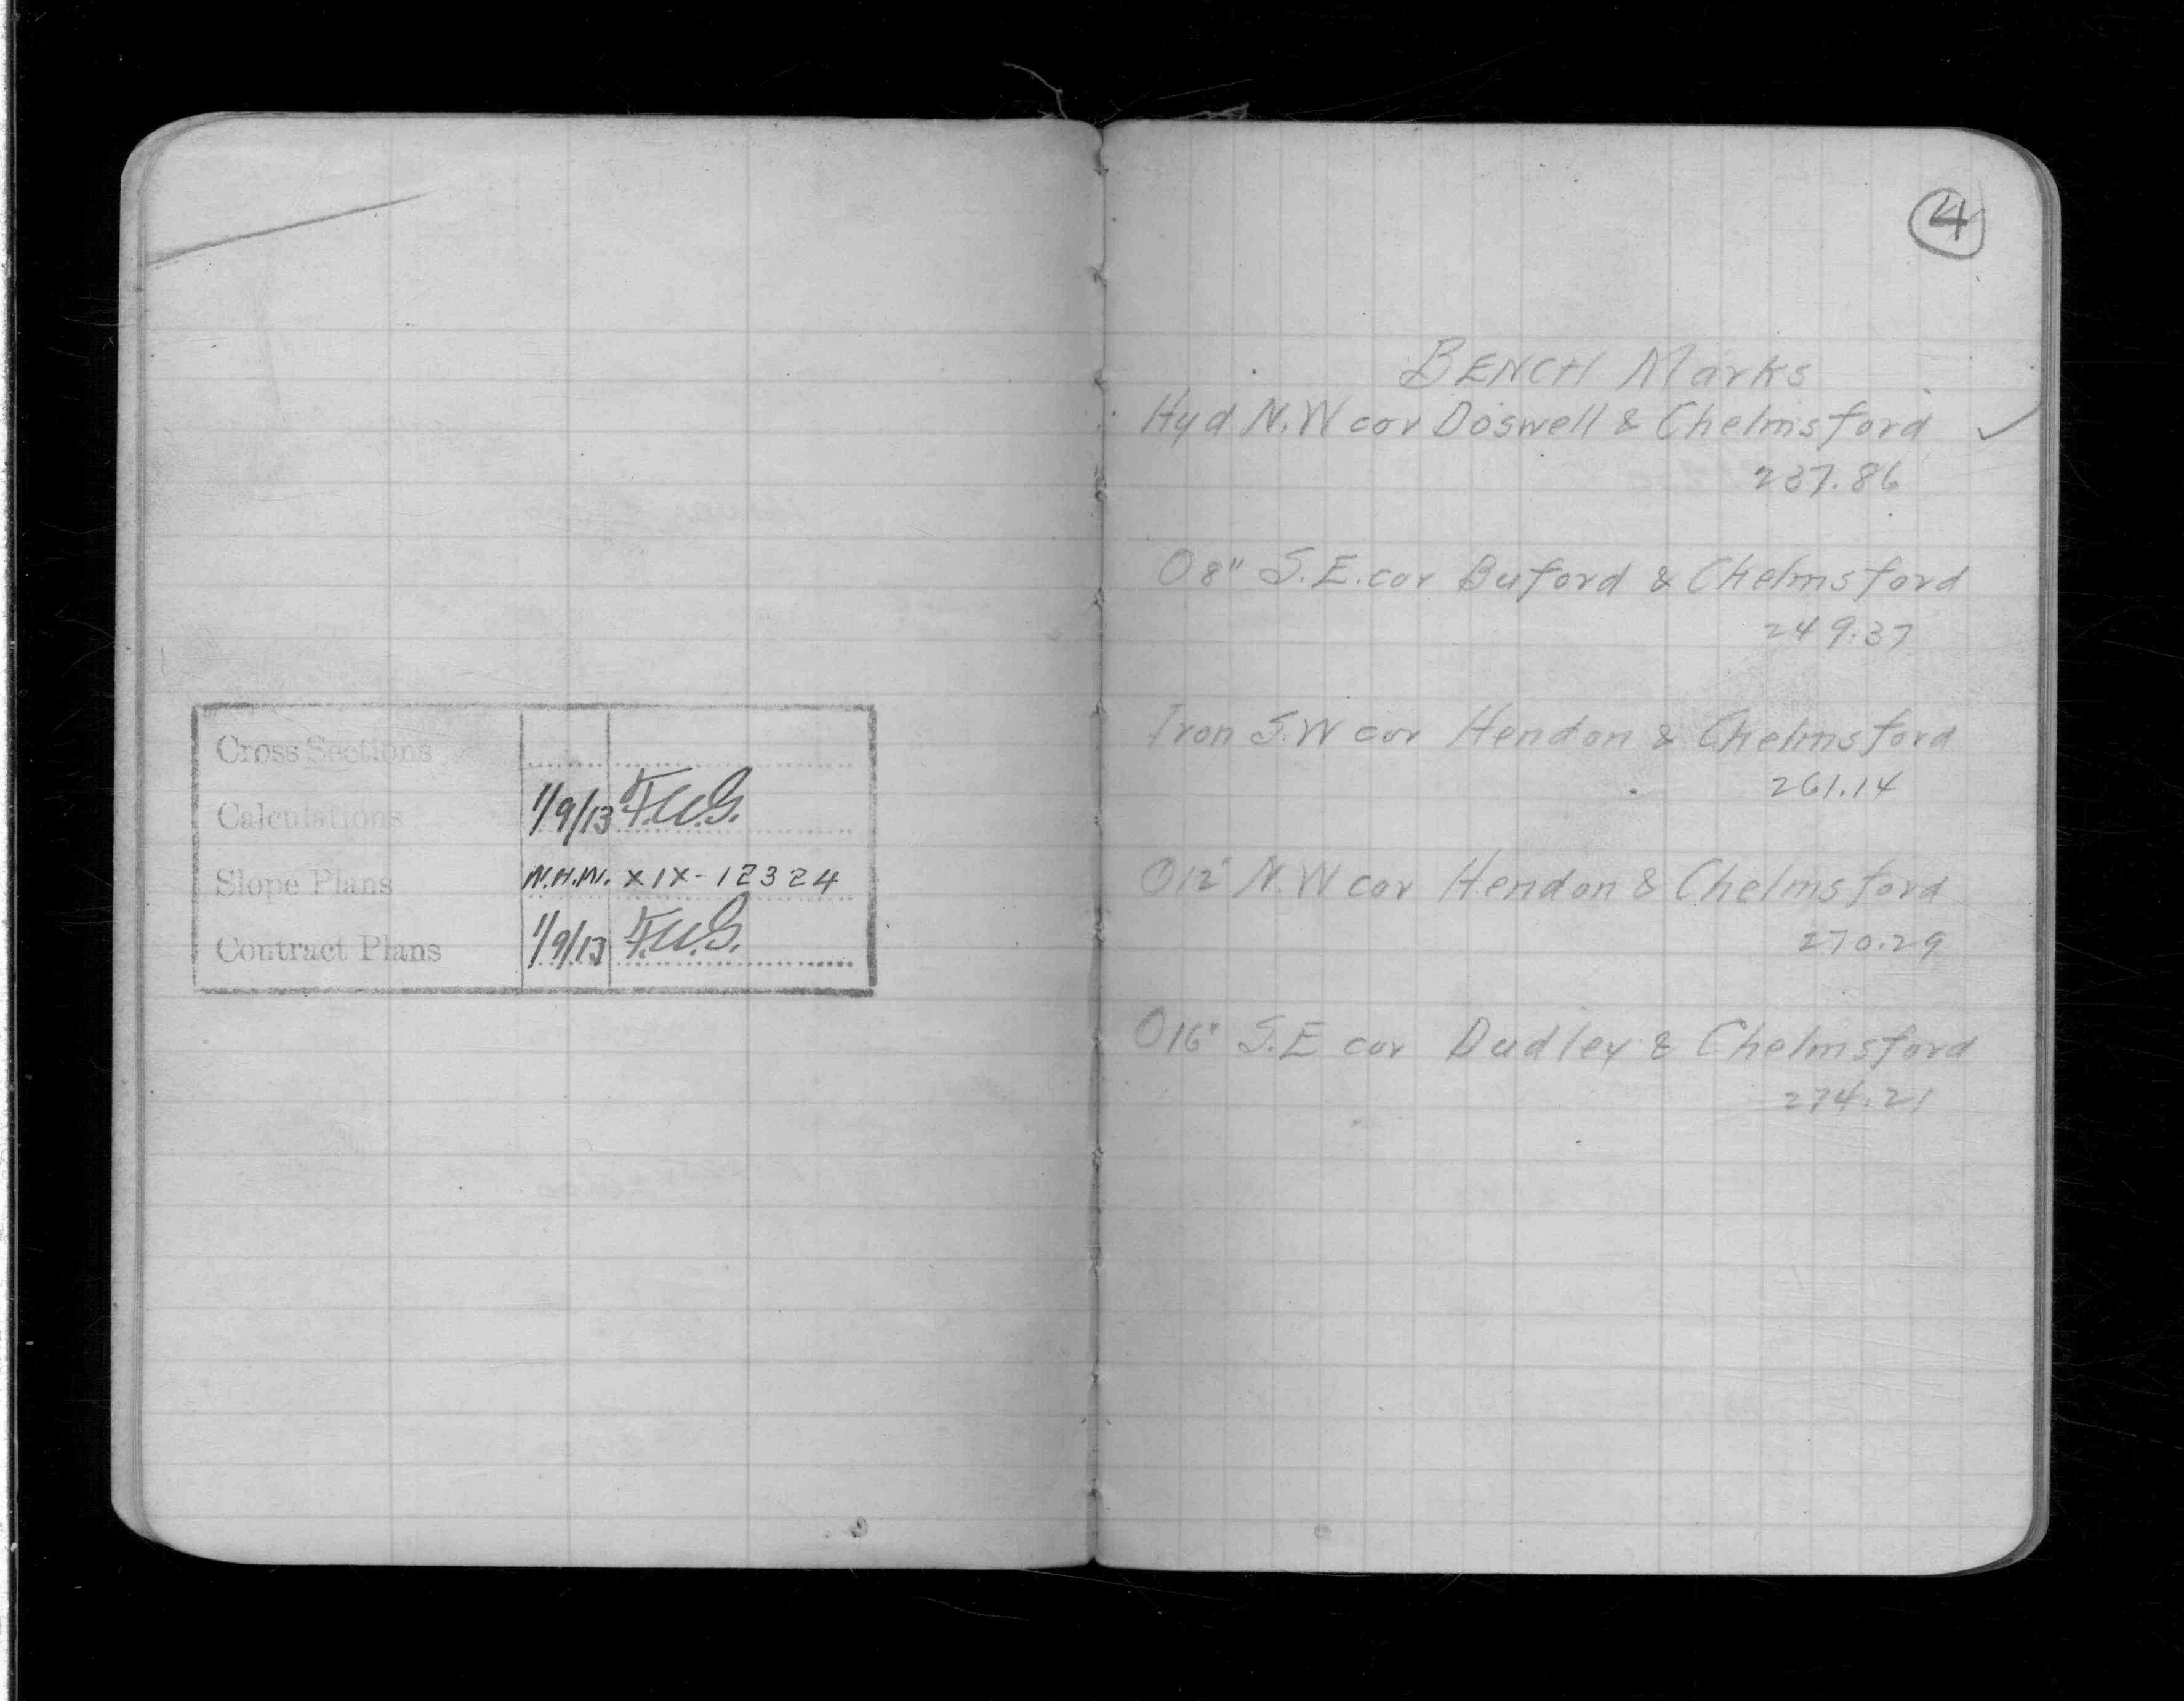 Cross Sections
Calculations 1/9/13 F.W.G.
Slope Plans N.H.W. XIX-12324
Contract Plans 1/9/13 F.W.G.
4
BENCH Marks
Hyd N.W cor Doswell & Chelmsford ✓
237.86
O 8" S.E. cor Buford & Chelmsford
249.37
Iron S.W cor Hendon & Chelmsford
261.14
O 12" N.W cor Hendon & Chelmsford
270.29
O 16" S.E cor Dudley & Chelmsford
274.21